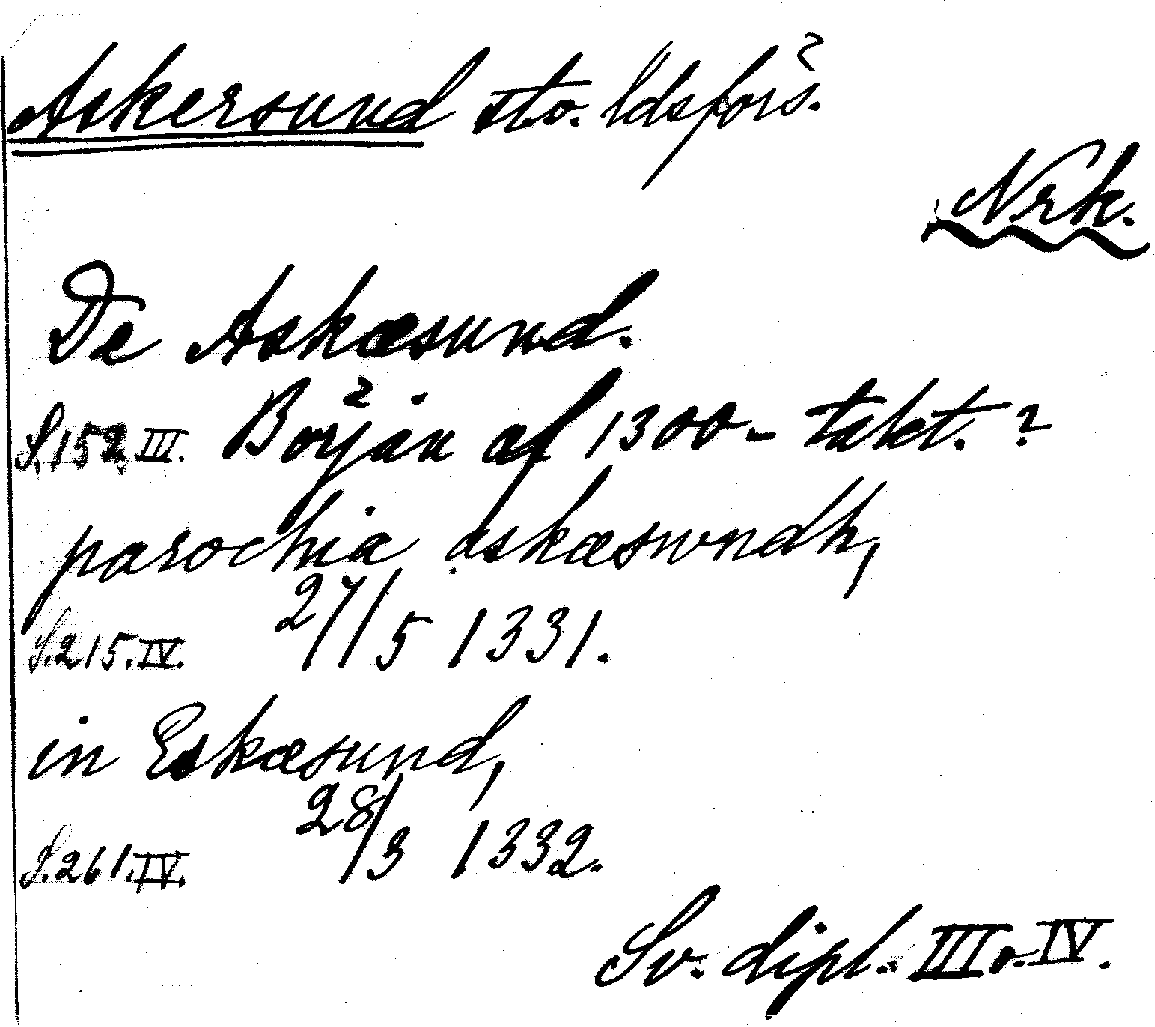 Askersund sto. ldsförs.
Nrk.
De Askæsund.
S. 152. III. Början af 1300-talet. ?
parochia askæswndh,
S. 215. IV. 27/5 1331.
in Eskæsund,
S. 261. IV. 28/3 1332.
Sv. dipl. III o. IV.